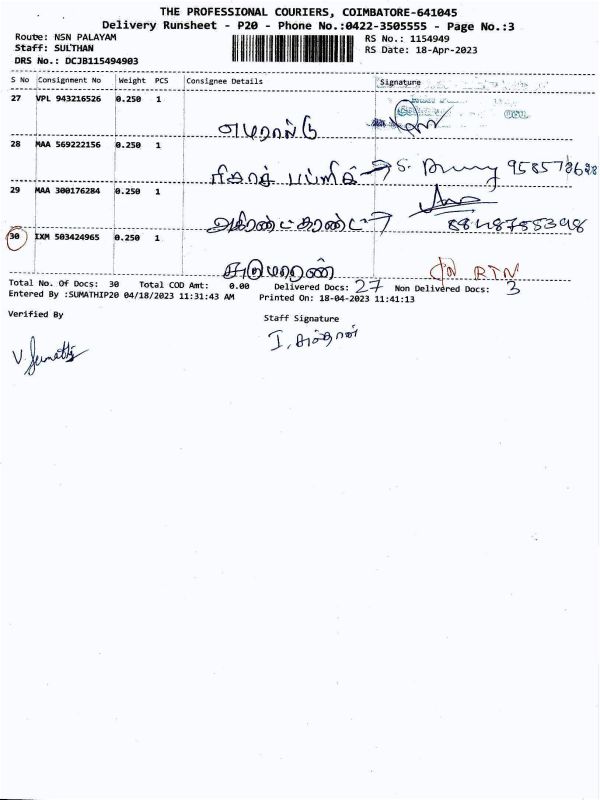 THE PROFESSIONAL COURIERS, COIMBATORE-641045
Delivery Runsheet - P20 - Phone No.:0422-3505555 - Page No.:3
Route: NSN PALAYAM
Staff: SULTHAN
DRS No.: DCJB115494903
RS No.: 1154949
RS Date: 18-Apr-2023
S No Consignment No Weight PCS Consignee Details Signature
27 VPL 943216526 0.250 1
எமரால்டு
28 MAA 569222156 0.250 1
29 MAA 300176284 0.250 1
30 IXM 503424965 0.250 1
RTN
Total No. Of Docs: 30 Total COD Amt: 0.00 Delivered Docs: 27 Non Delivered Docs: 3
Entered By :SUMATHIP20 04/18/2023 11:31:43 AM Printed On: 18-04-2023 11:41:13
Verified By Staff Signature